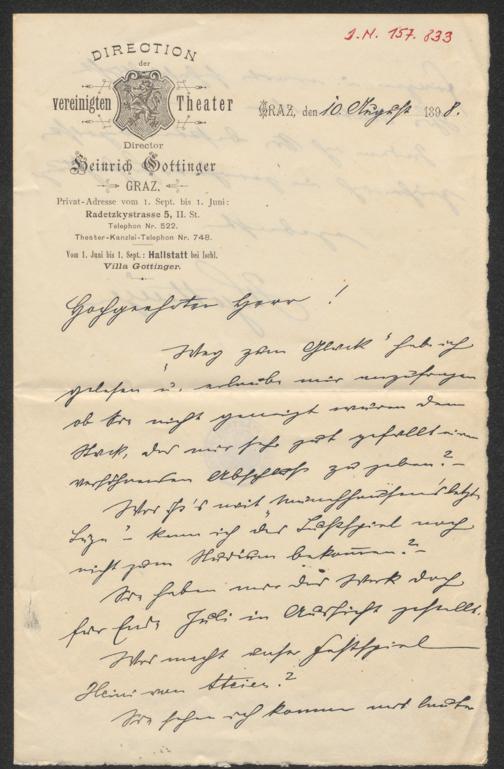 J.N. 157.833
DIRECTION
der
vereinigten Theater
GRAZ, den 10. August 1898.
Director
Heinrich Gottinger
GRAZ.
Privat-Adresse vom 1. Sept. bis 1. Juni:
Radetzkystrasse 5, II. St.
Telephon Nr. 522.
Theater-Kanzlei-Telephon Nr. 748.
Vom 1. Juni bis 1. Sept.: Hallstatt bei Ischl.
Villa Gottinger.
Hochgeehrter Herr!
"Weg zum Glück" habe ich
gelesen u. erlaube mir anzufragen
ob Sie nicht geneigt wären dem
Stück, das mir sehr gut gefällt einen
versöhnenden Abschluß zu geben?-
Was ist's mit "Münchhausen's letzte
Lüge"- kann ich das Lustspiel noch
nicht zum Studium bekommen?-
Sie haben mir das Werk doch
für Ende Juli in Aussicht gestellt.
Was macht unser Festspiel
Heini von Steier?
Sie sehen ich komme mit lauter